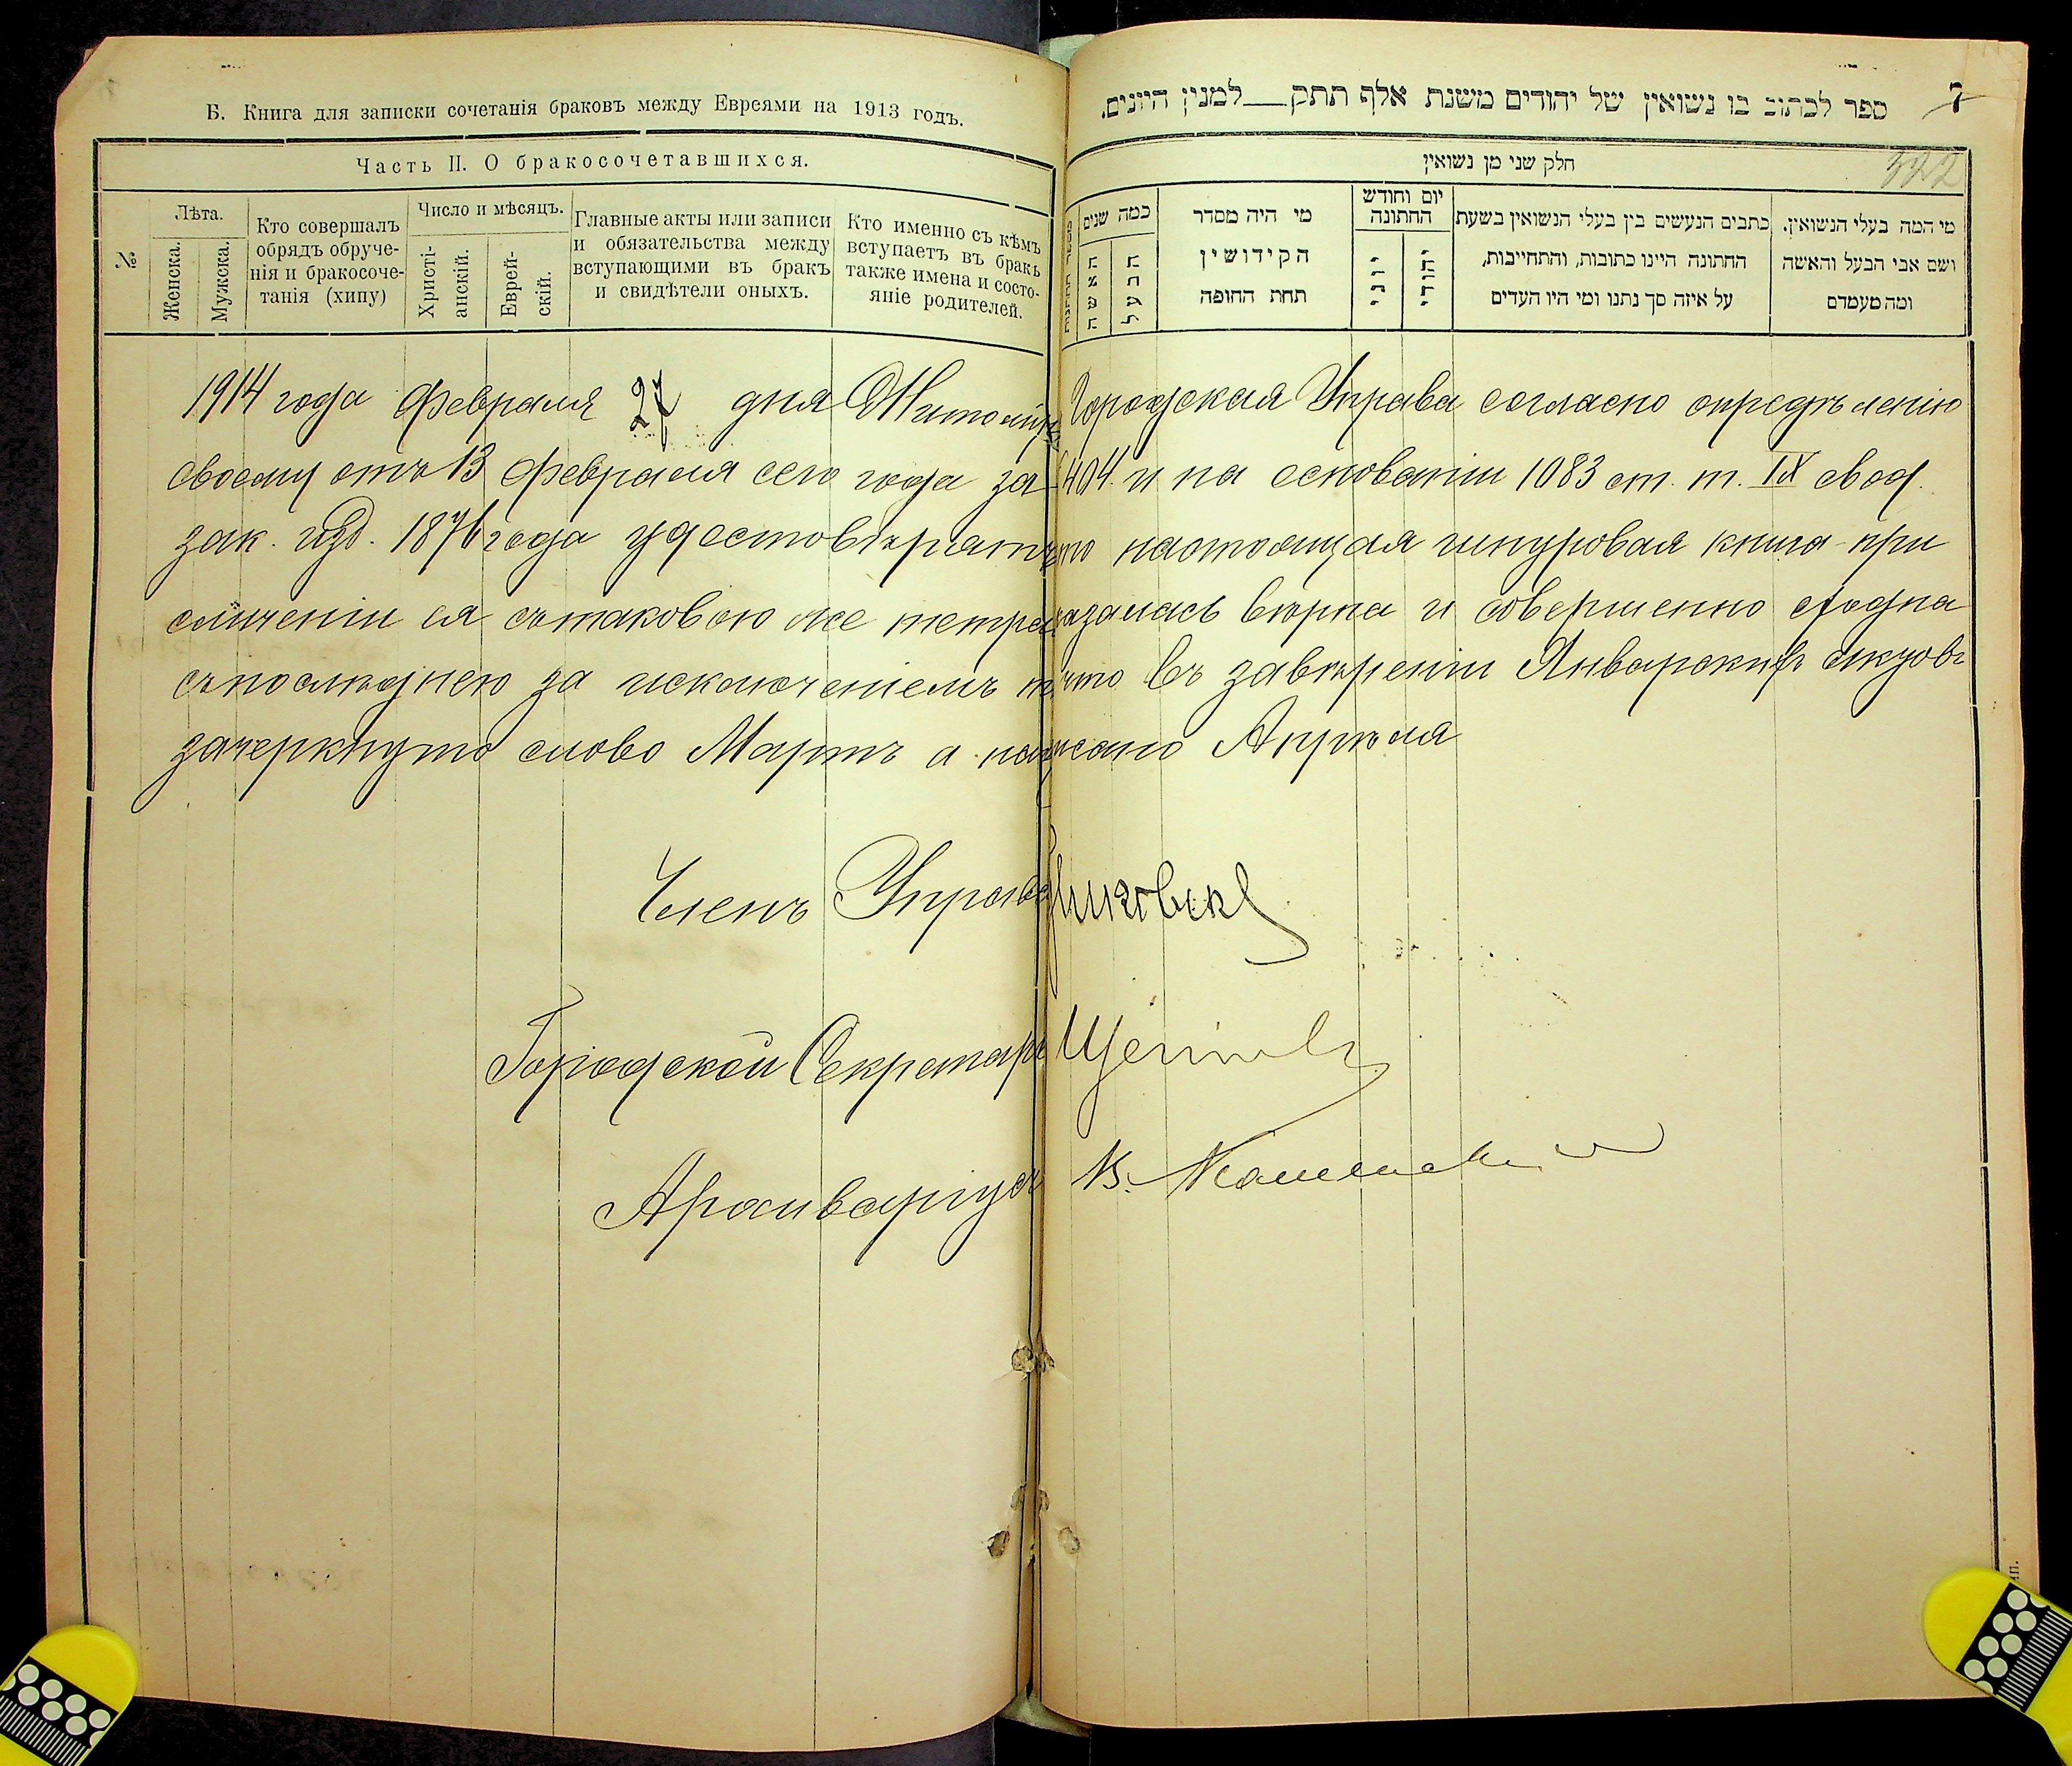 Б. Книга для записки сочетанія браковъ между Евреями на 1913 годъ.
Часть II. О бракосочетавшихся.
№
Лѣта.
Женска.
Мужска.
Кто совершалъ
обрядъ обруче-
нія и бракосоче-
танія (хипу)
Число и мѣсяцъ.
Христі-
анскій.
Еврей-
скій.
Главные акты или записи
и обязательства между
вступающими въ бракъ
и свидѣтели оныхъ.
Кто именно съ кѣмъ
вступаетъ въ бракъ
также имена и состо-
яніе родителей.
ספר לכתוב בו נשואין של יהודים משנת אלף תתק___למנין היונים.
7
322
חלק שני מן נשואין
מי המה בעלי הנשואין.
ושם אבי הבעל והאשה
ומה מעמדם
כתבים הנעשים בין בעלי הנשואין בשעת
החתונה היינו כתובות, והתחייבות,
על איזה סך נתנו ומי היו העדים
יום וחודש
החתונה
יהודי
יוני
מי היה מסדר
הקידושין
תחת החופה
כמה שנים
הבעל
האשה
1914 года Февраля 27 дня Житомір Городская Управа согласно опредѣленію
своему отъ 13 Февраля сего года за 404 и на основаніи 1083 ст. т. IX свод.
зак. изд. 1876 года удостовѣряетъ что настоящая шнуровая книга при
сличеніи ея съ таковою же тетра казалась вѣрна и совершенно сходна
съ послѣднею за исключеніемъ что въ завѣреніи Январскихъ актовъ
зачеркнуто слово Мартъ а написано Апрѣля
Членъ Управы
Городской Секретарь
Архиваріусъ